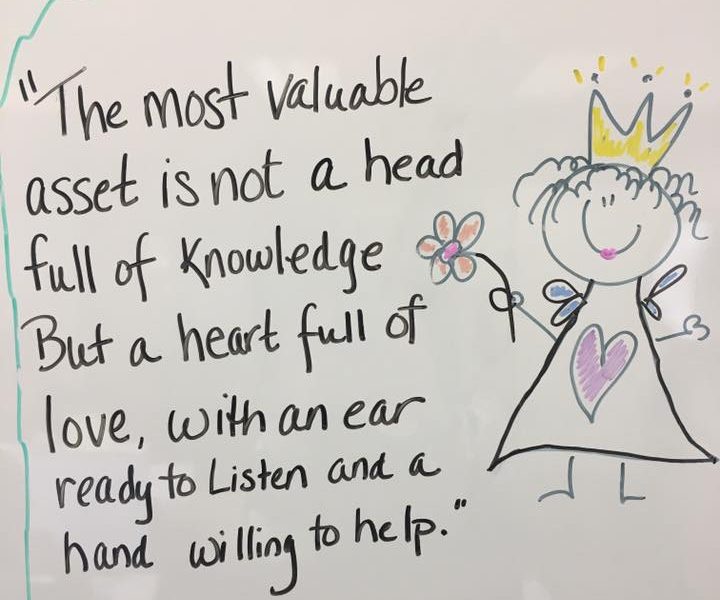 "The most valuable
asset is not a head
full of Knowledge
But a heart full of
love, with an ear
ready to Listen and a
hand willing to help."